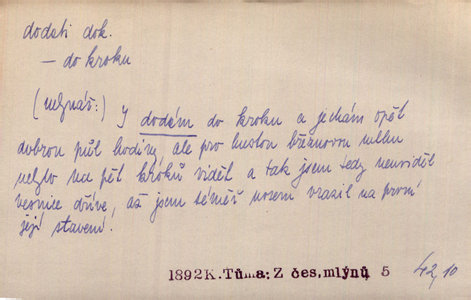 dodati dok.
– do kroku
(mlynář:) I dodám do kroku a jechám opět
dobrou půl hodiny, ale pro hustou březnovou mlhu
nelze na pět kroků viděl a tak jsem tedy neuviděl
vesnice dříve, až jsem téměř nosem vrazil na první
její stavení.
1892K.Tůma: Z čes,mlýnů 5 42,10